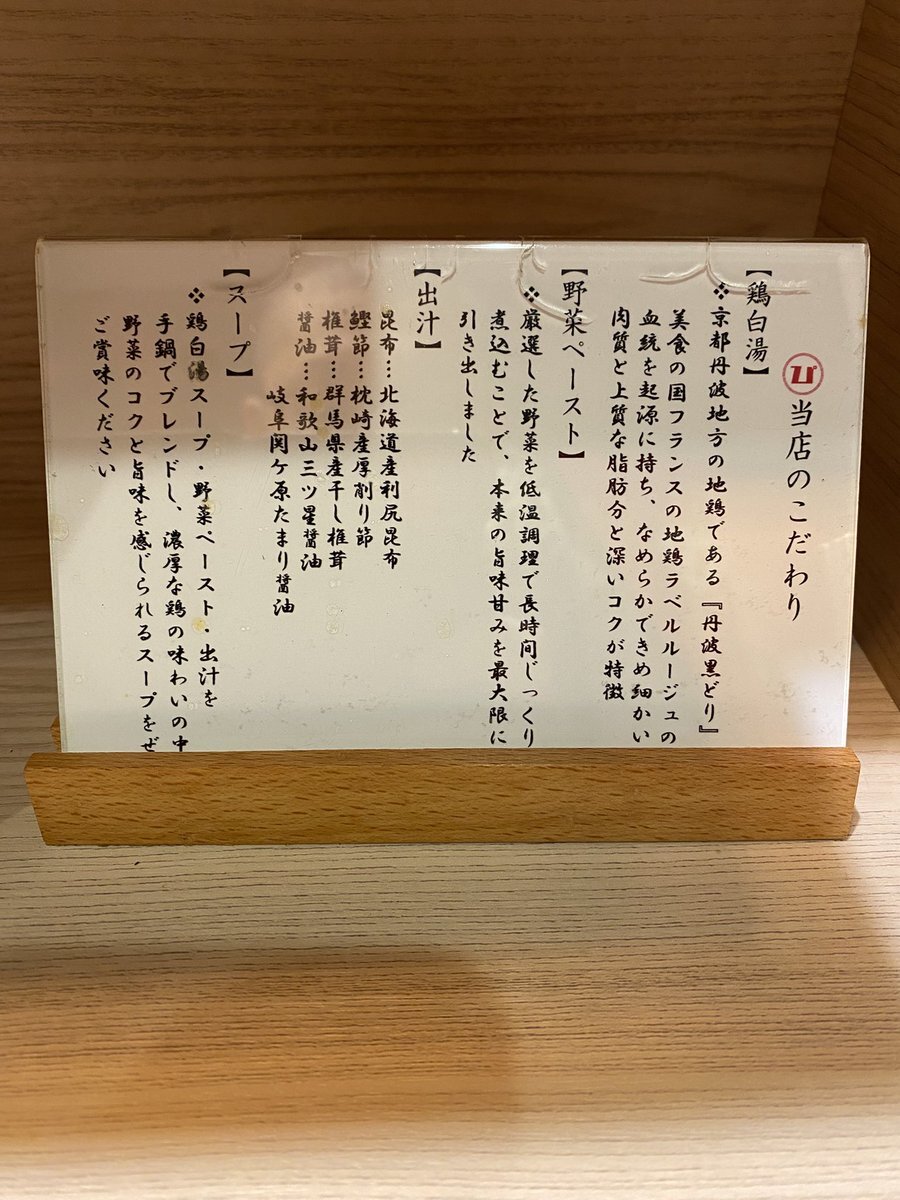 当店のこだわり
【鶏白湯】
❖京都丹波地方の地鶏である『丹波黒どり』
美食の国フランスの地鶏ラベルルージュの
血統を起源に持ち、なめらかできめ細かい
肉質と上質な脂肪分と深いコクが特徴
【野菜ペースト】
❖厳選した野菜を低温調理で長時間じっくり
煮込むことで、本来の旨味甘みを最大限に
引き出しました
【出汁】
昆布…北海道産利尻昆布
鰹節…枕崎産厚削り節
椎茸…群馬県産干し椎茸
醤油…和歌山三ツ星醤油
岐阜関ケ原たまり醤油
【スープ】
❖鶏白湯スープ・野菜ペースト・出汁を
手鍋でブレンドし、濃厚な鶏の味わいの中
野菜のコクと旨味を感じられるスープをぜ
ご賞味ください